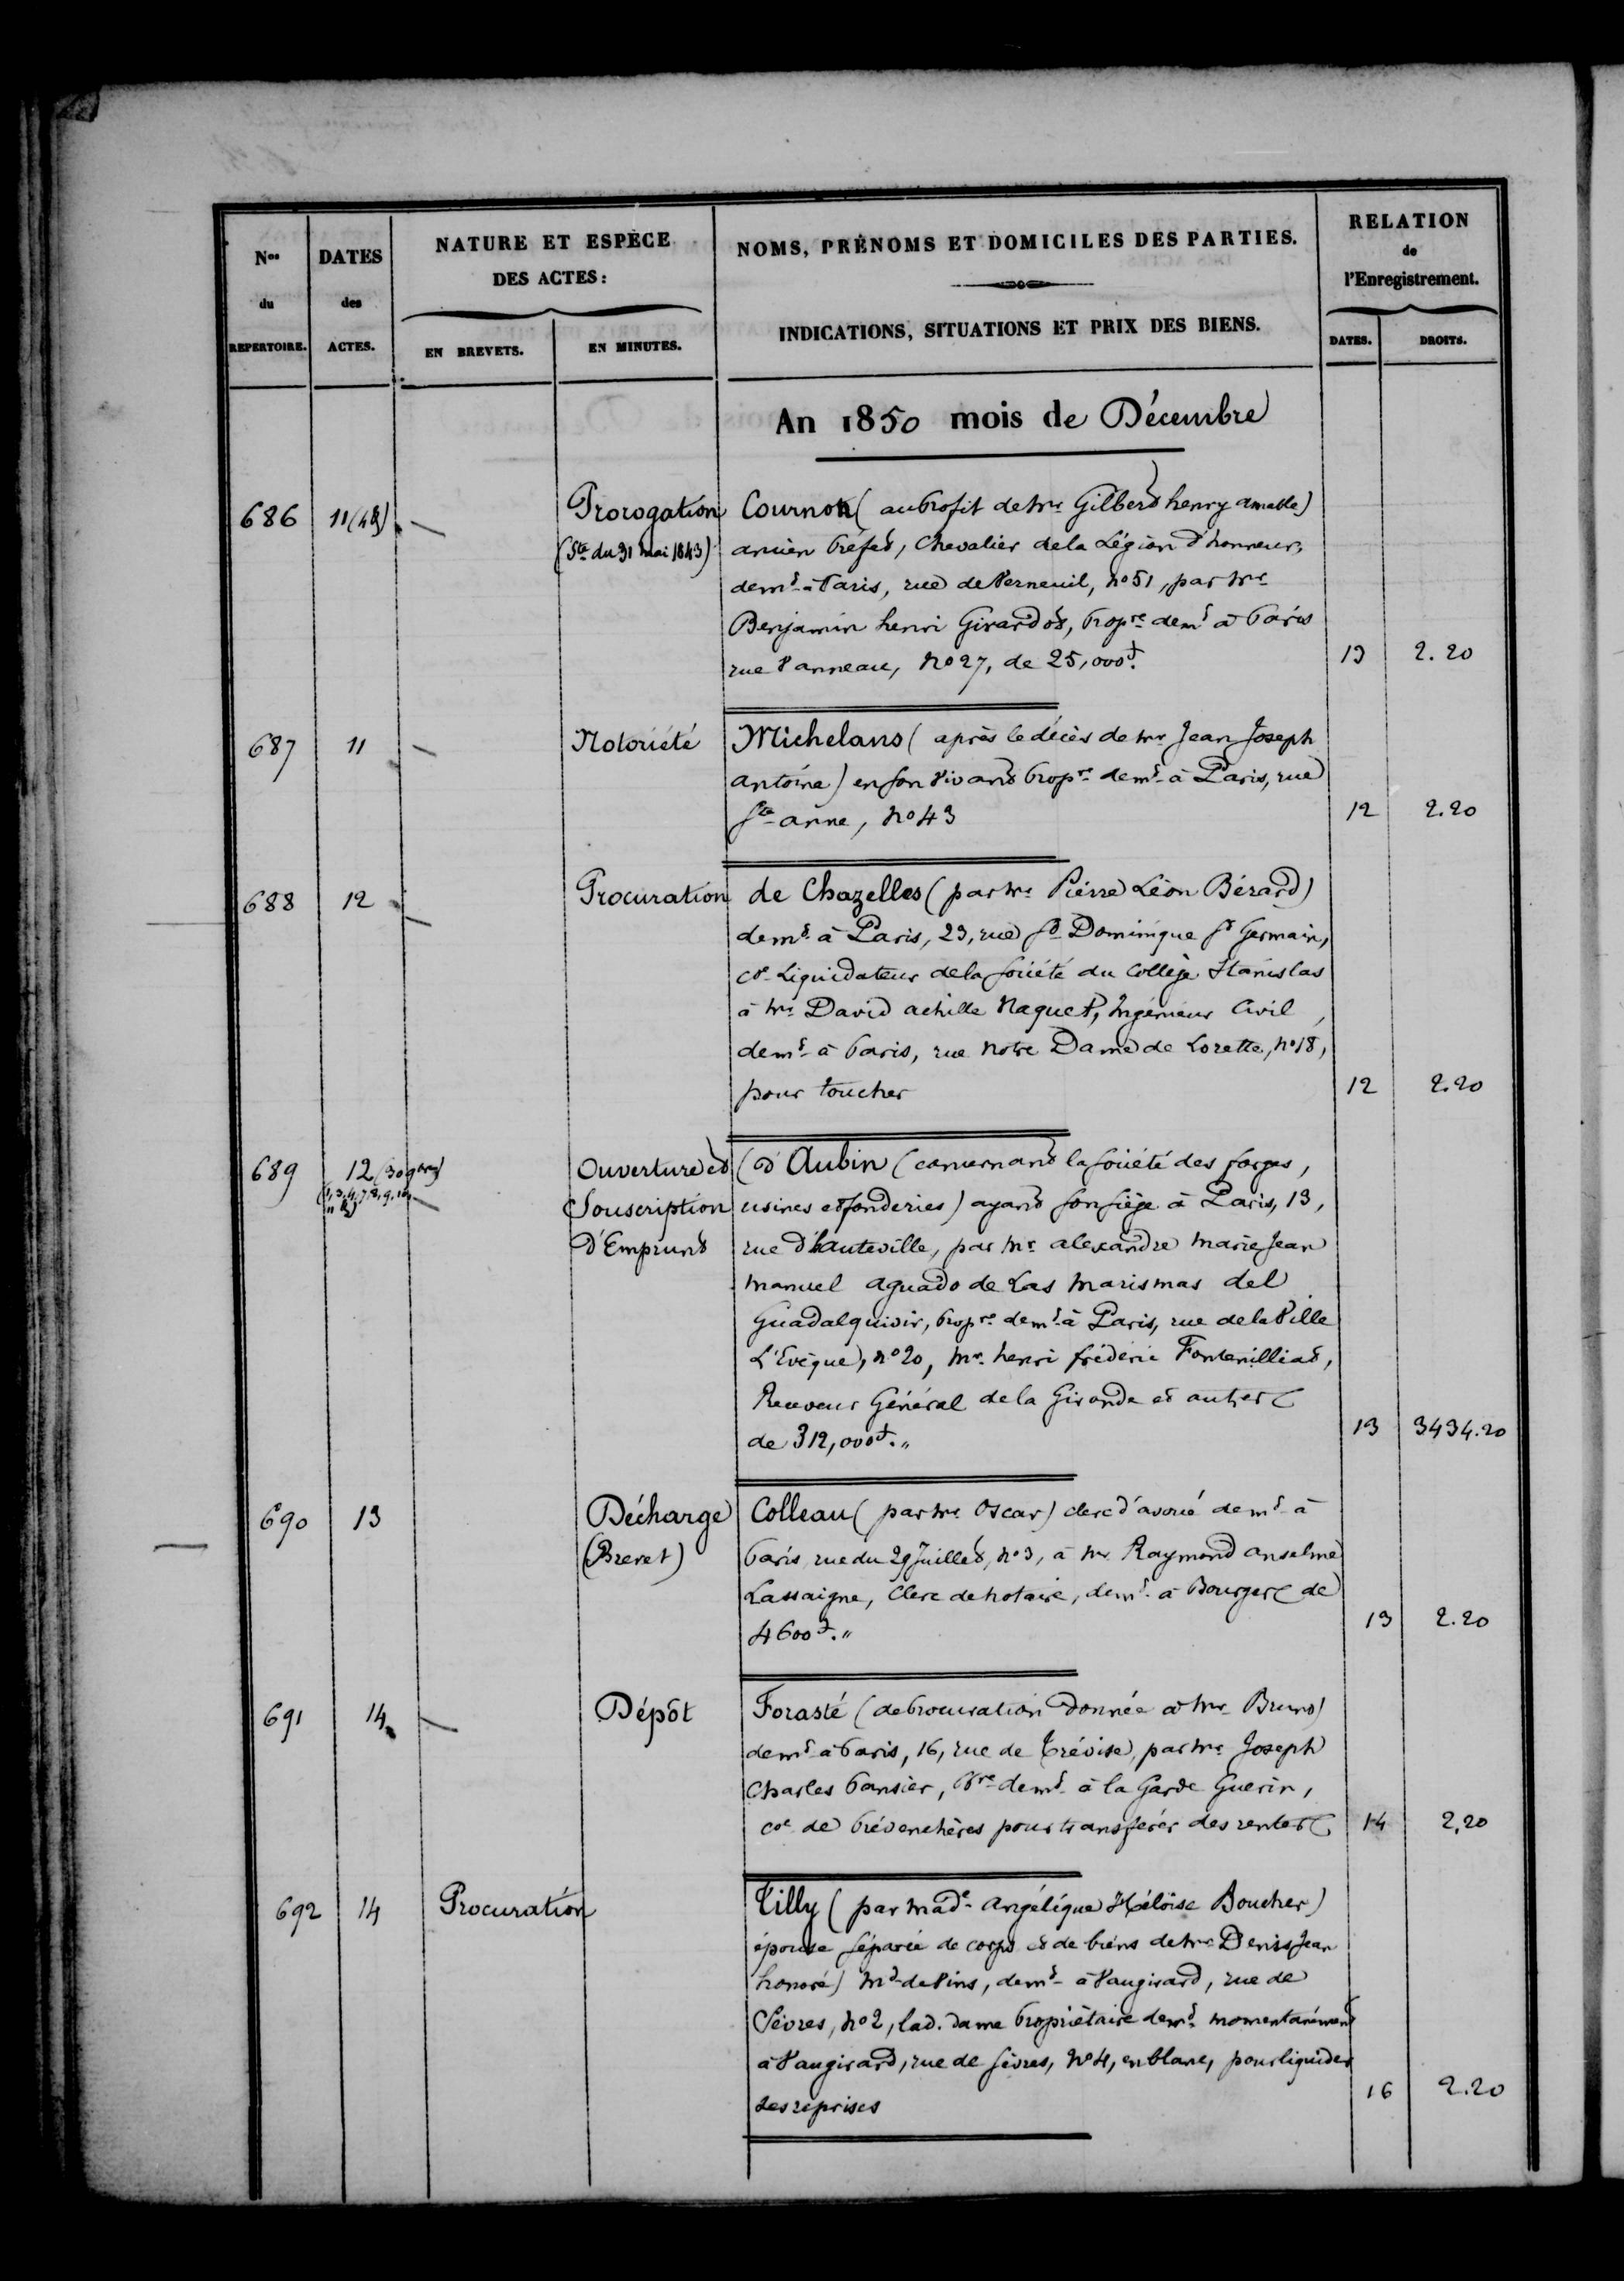 Nos du REPERTOIRE.
DATES des ACTES.
NATURE ET ESPÈCE DES ACTES:
EN BREVETS.
EN MINUTES.
NOMS, PRÉNOMS ET DOMICILES DES PARTIES.
INDICATIONS, SITUATIONS ET PRIX DES BIENS.
RELATION de l'Enregistrement.
DATES.
DROITS.
An 1850 mois de Décembre
686 11 — Prorogation Cournon (au Profit de Mr Gilbert henry amable)
(Ste du 31 mai 1843) ancien Préfet, Chevalier de la Légion d'honneur,
demt à Paris, rue de Verneuil, no 51, par Mr
Benjamin henri Girardot, Propre demt à Paris
rue Vanneau, No 27, de 25,000f. 13 2.20
687 11 — Notoriété Michelans (après le décès de Mr Jean Joseph
antoine) en son vivant Propre demt à Paris, rue
Ste anne, No 43 12 2.20
688 12 — Procuration de Chazelles (par Mr Pierre Léon Bérard)
demt à Paris, 23, rue St Dominique St Germain,
co-Liquidateur de la Société du Collège Stanislas
à Mr David achille Naquet, Ingénieur Civil,
demt à Paris, rue Notre Dame de Lorette, no 18,
pour toucher 12 2.20
689 12 — Ouverture et (d'Aubin (concernant la Société des forges,
Souscription usines et fonderies) ayant son siège à Paris, 13,
d'Emprunt rue d'hauteville, par Mr alexandre Marie Jean
Manuel aguado de Las Marismas del
Guadalquivir, Propre demt à Paris, rue de la Ville
L'Evèque, no 20, Mr henri fréderic Fontenilliat,
Receveur Général de la Gironde et autres
de 312,000f." 13 3434.20
690 13 Décharge Colleau (par Mr Oscar) clerc d'avoué demt à
(Brevet) Paris, rue du 29 Juillet, no 3, à Mr Raymond anselme
Lassaigne, Clerc de Notaire, demt à Bourges de
4600f." 13 2.20
691 14 — Dépôt Forasté (de Procuration donnée à Mr Bruno)
demt à Paris, 16, rue de Trévise, par Mr Joseph
Charles Pansier, Pre demt à la Garde Guerin,
Cne de Prévenchères pour transférer des rentes 14 2,20
692 14 Procuration Tilly (par Made Angélique Héloïse Boucher)
épouse séparée de corps et de biens de Mr Denis Jean
honoré) Md de Vins, demt à Vaugirard, rue de
Sèvres, no 2, lad. dame Propriétaire demt momentanément
à Vaugirard, rue de Sèvres, No 4, en blanc, pour liquider
ses reprises 16 2.20